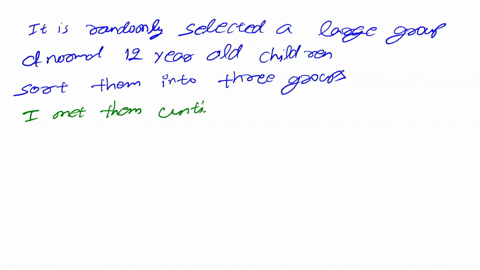 It is randomly selected a large group
of normal 12 year old children
sort them into three groups
I met them until